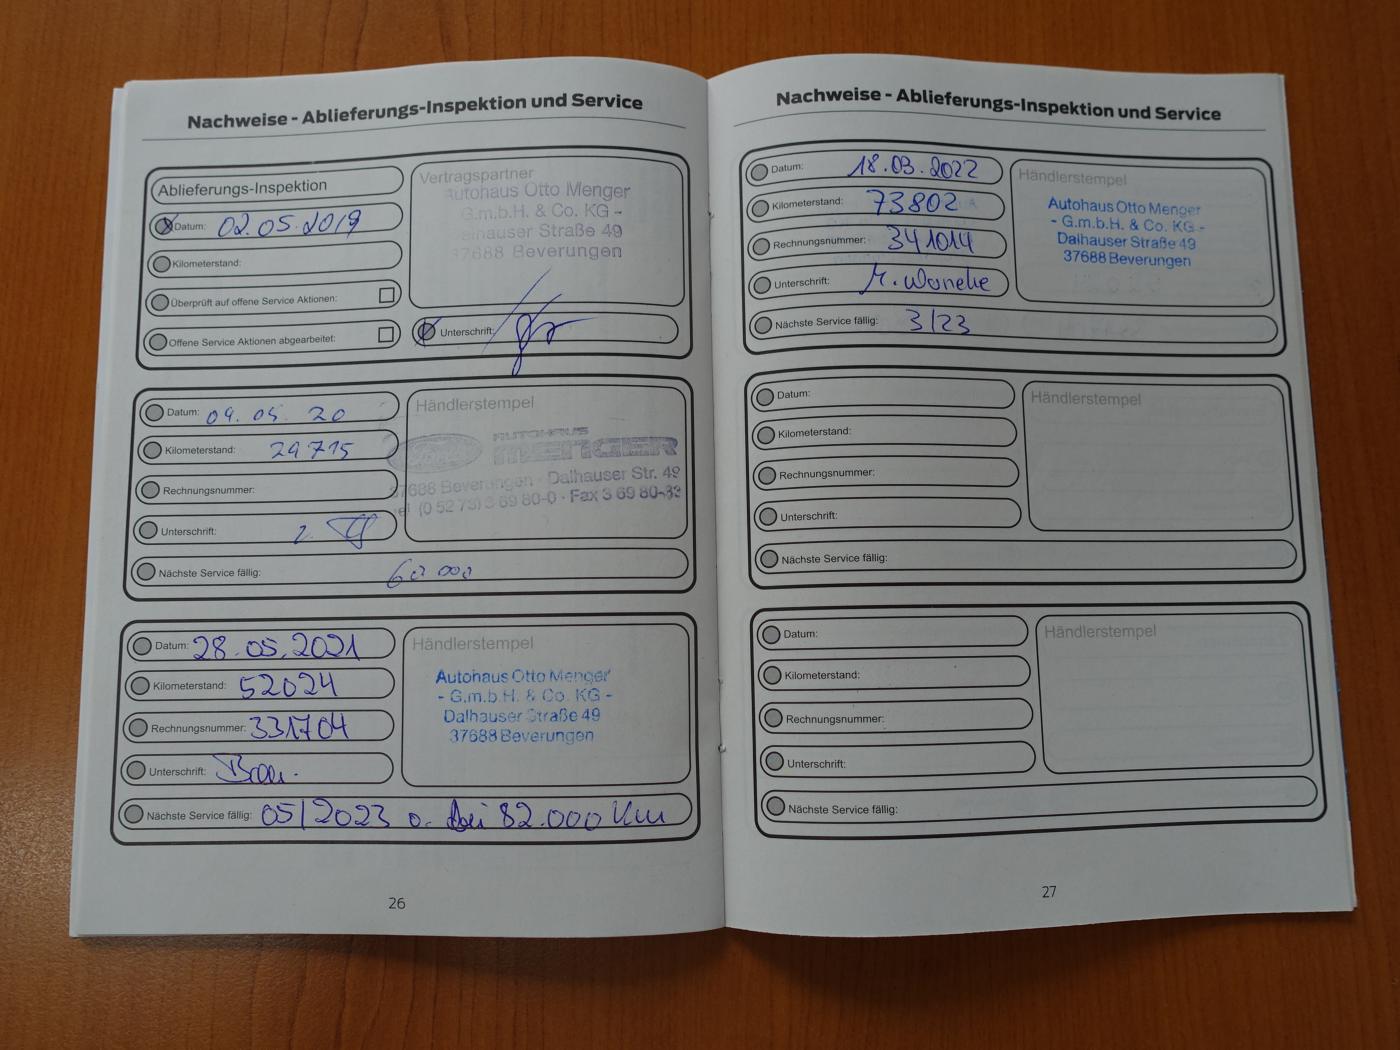 Nachweise - Ablieferungs-Inspektion und Service
Ablieferungs-Inspektion
Datum: 02.05.2019
Kilometerstand:
Überprüft auf offene Service Aktionen:
Offene Service Aktionen abgearbeitet:
Vertragspartner
Autohaus Otto Menger
G.m.b.H. & Co. KG -
Dalhauser Straße 49
37688 Beverungen
Unterschrift:
Datum: 04.05.20
Kilometerstand: 29715
Rechnungsnummer:
Unterschrift:
Nächste Service fällig: 60 000
Händlerstempel
Ford AUTOHAUS
MENGER
37688 Beverungen · Dalhauser Str. 49
Tel (0 52 73) 3 69 80-0 · Fax 3 69 80-33
Datum: 28.05.2021
Kilometerstand: 52024
Rechnungsnummer: 331704
Unterschrift:
Nächste Service fällig: 05/2023 o. bei 82.000 Km
Händlerstempel
Autohaus Otto Menger
- G.m.b.H. & Co. KG -
Dalhauser Straße 49
37688 Beverungen
26
Nachweise - Ablieferungs-Inspektion und Service
Datum: 18.03.2022
Kilometerstand: 73802
Rechnungsnummer: 341014
Unterschrift: M. Waneke
Nächste Service fällig: 3/23
Händlerstempel
Autohaus Otto Menger
- G.m.b.H. & Co. KG -
Dalhauser Straße 49
37688 Beverungen
Datum:
Kilometerstand:
Rechnungsnummer:
Unterschrift:
Nächste Service fällig:
Händlerstempel
Datum:
Kilometerstand:
Rechnungsnummer:
Unterschrift:
Nächste Service fällig:
Händlerstempel
27